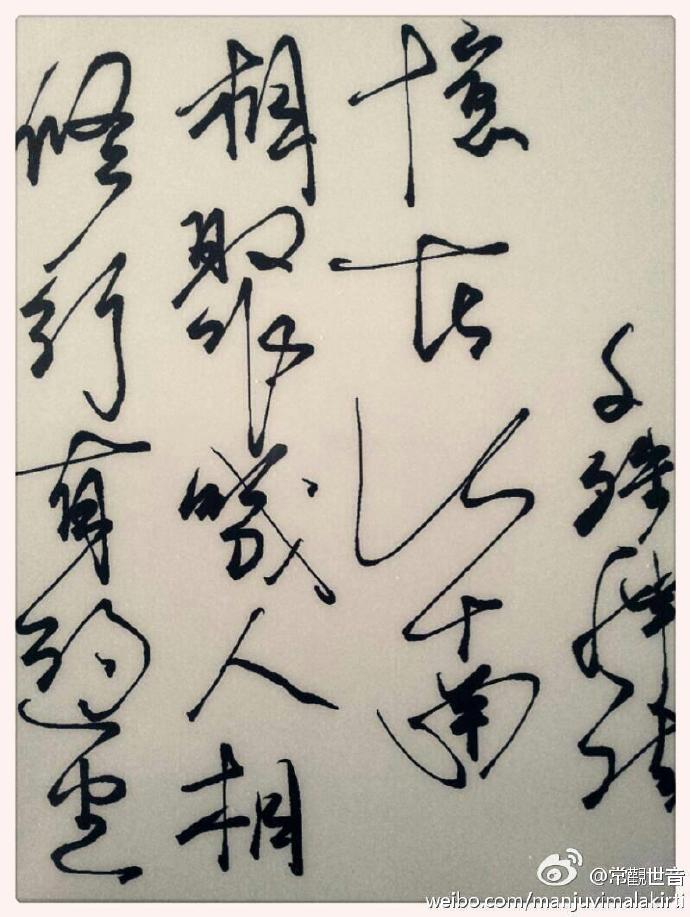 文殊禪
憶昔南
相聚幾人相
修行有
@常觀世音
weibo.com/manjuvimalakirti